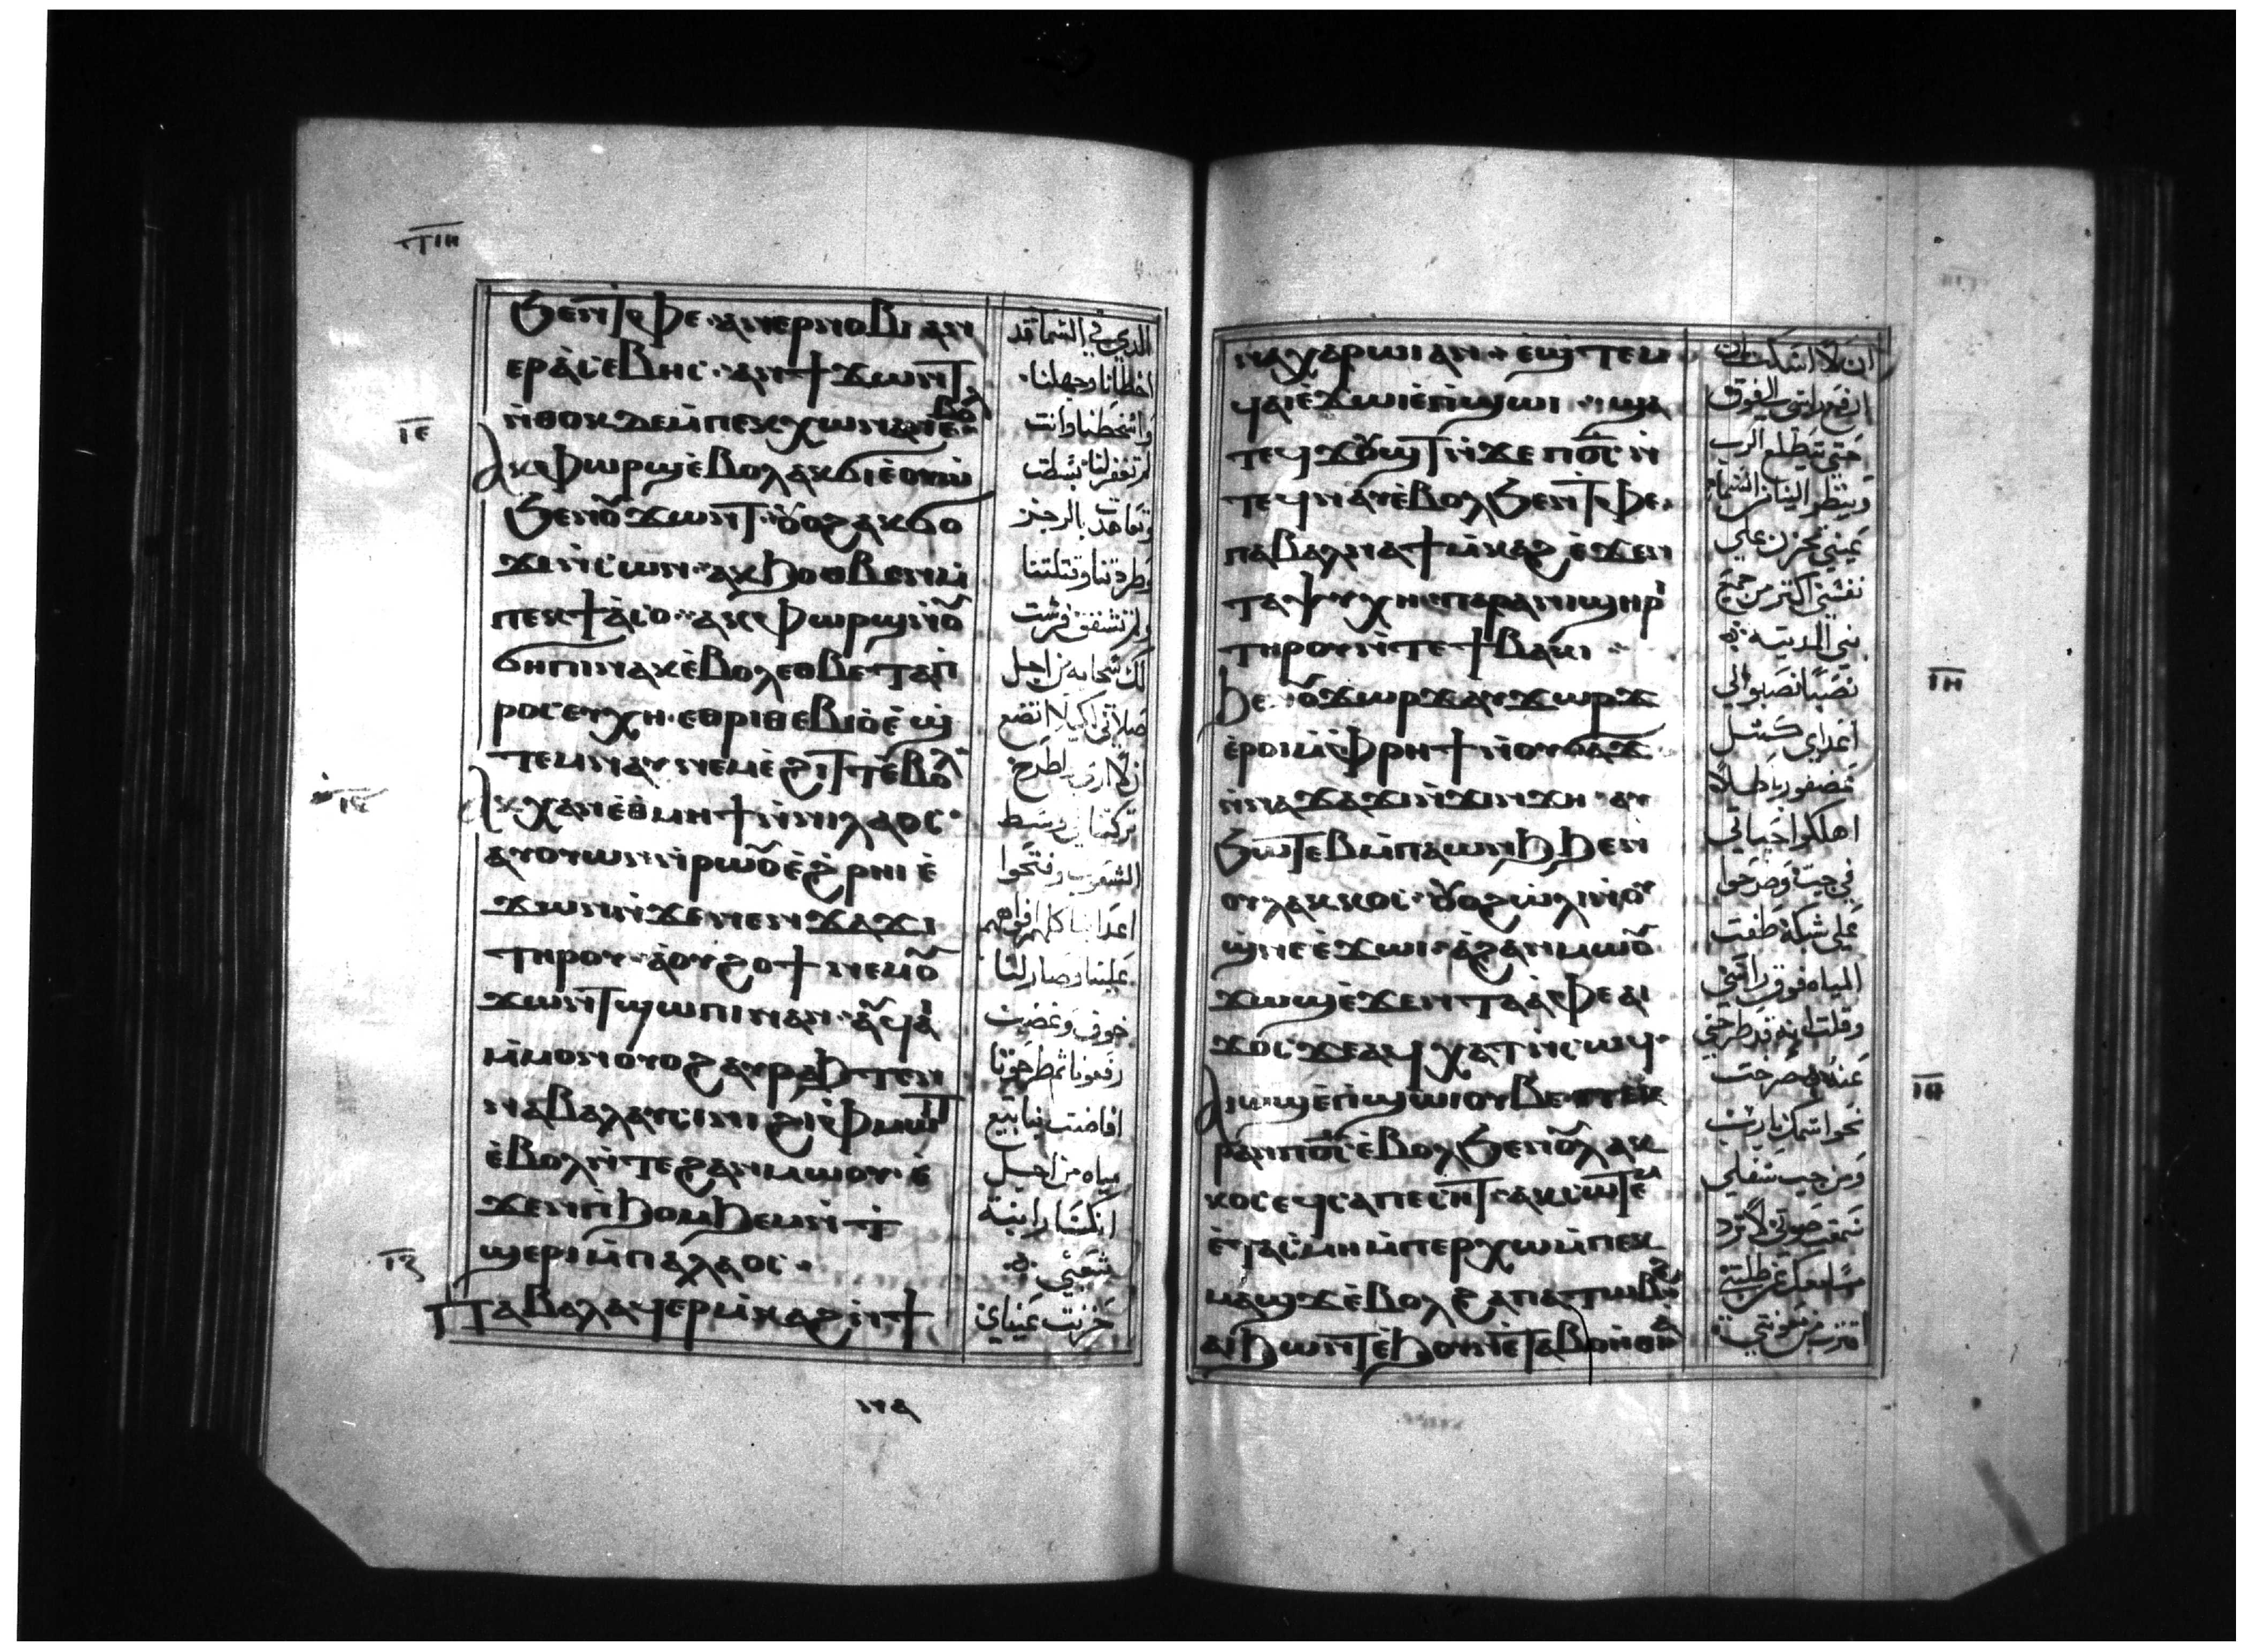 ⲧⲓⲏ
ϧⲉⲛⲧⲫⲉ ⲁⲛⲉⲣⲛⲟⲃⲓ ⲁⲛ
ⲉⲣⲁ̀ⲥⲉⲃⲏⲥ ⲁⲛϯϫⲱⲛⲧ
ⲛ̀ⲑⲟⲕ ⲇⲉ ⲙ̀ⲡⲉⲕⲭⲱ ⲛⲁⲛ ⲉ̀ⲃⲟⲗ
ⲓ̅ⲉ̅
ⲁⲕⲫⲱⲣϣ ⲉ̀ⲃⲟⲗ ⲁⲕϭⲓ ⲉ̀ⲟⲩⲱ
ϧⲉⲛⲟⲩϫⲱⲛⲧ ⲟⲩⲟϩ ⲁⲕϭⲟ
ϫⲓ ⲛ̀ⲥⲱⲛ ⲁⲕϧⲟⲑⲃⲉⲛ ⲙ̀
ⲡⲉⲕϯⲁ̀ⲥⲟ ⲁⲕⲫⲱⲣϣ ⲛ̀ⲟⲩ
ϭⲏⲡⲓ ⲛⲁⲕ ⲉ̀ⲃⲟⲗ ⲉⲑⲃⲉ ⲧⲁⲡ
ⲣⲟⲥⲉⲩⲭⲏ ⲉⲑⲣⲓⲑⲉⲃⲓⲟ ⲉ̀ϣ
ⲧⲉⲙⲛⲁⲩ ⲛⲉⲙ ⲉ̀ϩⲓⲧⲧ ⲉ̀ⲃⲟⲗ
ⲓ̅ⲋ̅
ⲁⲕⲭⲁⲛ ⲉ̀ⲑⲙⲏϯ ⲛ̀ⲛⲓⲗⲁⲟⲥ
ⲁⲩⲟⲩⲱⲛ ⲛ̀ⲣⲱⲟⲩ ⲉ̀ϩⲣⲏⲓ ⲉ̀
ϫⲱⲛ ⲛ̀ϫⲉ ⲛⲉⲛϫⲁϫⲓ
ⲧⲏⲣⲟⲩ ⲁ̀ⲟⲩϩⲟϯ ⲛⲉⲙ ⲟⲩ
ϫⲱⲛⲧ ϣⲱⲡⲓ ⲛⲁⲛ ⲁⲩϥⲁⲓ
ⲙ̀ⲙⲟⲛ ⲟⲩⲟϩ ⲁⲩⲣⲁϧⲧⲉⲛ
ⲛⲁⲃⲁⲗ ⲁⲩⲥⲓⲛⲓ ϩⲓ ⲫⲙⲱⲓⲧ
ⲉ̀ⲃⲟⲗ ⲛ̀ⲧⲉ ϩⲁⲛⲙⲱⲟⲩ ⲉ̀
ϫⲉⲛ ⲡ̀ϧⲟⲙϧⲉⲙ ⲛ̀ⲧ
ϣⲉⲣⲓ ⲙ̀ⲡⲁⲗⲁⲟⲥ
ⲓ̅ⲍ̅
ⲡⲁⲃⲁⲗ ⲁϥⲉⲣⲙ̀ⲕⲁϩ ⲛ̀ϯ
الدي في السما قد
اخطانا وجهلنا
واسخطنا وانت
لم تغفر لنا بسطت
وتعاهدت بالرجز
وطردتنا وقتلتنا
ولم تشفق فرشت
لك سحابه من اجل
صلاتي لكيلا اتضع
تركتنا في وسط
الشعوب وفتحوا
اعدانا كلهم افواههم
علينا وصار لنا
خوف وغضب
رفعونا ثم طرحونا
افاضت ينابيع
مياه من اجل
انكسار ابنة
شعبي
حزنت عيناي
ⲛⲁⲭⲁⲣⲱⲓ ⲁⲛ ⲉϣⲧⲉⲙ
ϥⲁⲓ ⲉ̀ϫⲱⲓ ⲉ̀ⲡϣⲱⲓ ϣⲁ
ⲧⲉϥϫⲟⲩϣⲧ ⲛ̀ϫⲉ ⲡⲟ̅ⲥ̅ ⲛ̀
ⲧⲉϥⲛⲁⲩ ⲉ̀ⲃⲟⲗϧⲉⲛ ⲧⲫⲉ
ⲡⲁⲃⲁⲗ ⲛⲁϯⲙ̀ⲕⲁϩ ⲉ̀ϫⲉⲛ
ⲧⲁⲯⲩⲭⲏ ⲡⲁⲣⲁ ⲛⲓϣⲏⲣⲓ
ⲧⲏⲣⲟⲩ ⲛ̀ⲧⲉ ϯⲃⲁⲕⲓ
ⲓ̅ⲏ̅
ϧⲉⲛⲟⲩϫⲱⲣϫ ⲁⲩϫⲱⲣϫ
ⲉ̀ⲣⲟⲓ ⲙ̀ⲫⲣⲏϯ ⲛ̀ⲟⲩϭⲁϫ
ⲛ̀ⲛⲁϫⲁϫⲓ ⲛ̀ϫⲓⲛϫⲏ ⲁⲩ
ϧⲱⲧⲉⲃ ⲙ̀ⲡⲁⲱⲛϧ ϧⲉⲛ
ⲟⲩⲗⲁⲕⲕⲟⲥ ⲟⲩⲟϩ ⲁⲩⲱⲗⲓ ⲛ̀ⲟⲩ
ϣⲛⲉ ⲉ̀ϫⲱⲓ ⲁ̀ϩⲁⲛⲙⲱⲟⲩ
ϫⲱϣ ⲉ̀ϫⲉⲛ ⲧⲁⲁ̀ⲫⲉ ⲁⲓ
ϫⲟⲥ ϫⲉ ⲁϥⲭⲁⲧ ⲛ̀ⲥⲱϥ
ⲓ̅ⲑ̅
ⲁⲓⲱϣ ⲉ̀ⲡϣⲱⲓ ⲟⲩⲃⲉ ⲡⲉⲕ
ⲣⲁⲛ ⲡⲟ̅ⲥ̅ ⲉ̀ⲃⲟⲗϧⲉⲛ ⲟⲩⲗⲁⲕ
ⲕⲟⲥ ⲉϥⲥⲁⲡⲉⲥⲏⲧ ⲁⲕⲥⲱⲧⲉⲙ
ⲉ̀ⲧⲁⲥ̀ⲙⲏ ⲙ̀ⲡⲉⲣⲭⲱ ⲙ̀ⲡⲉⲕ
ⲙⲁϣϫ ⲉ̀ⲃⲟⲗ ϩⲁ ⲡⲁⲧⲱⲃϩ
ⲁⲓϧⲱⲛⲧ ⲉ̀ϧⲟⲩⲛ ⲉ̀ⲧⲁⲃⲟⲏⲑⲓⲁ
ان لا اسكت ان
ارفع راسي الي فوق
حتي يتطلع الرب
وينظر الينا من السما
عيني تحزن علي
نفسي اكتر من جميع
بني المدينه
نصبا نصبوا لي
اعداي كمتل
عصفور باطلا
اهلكوا حياتي
في جب وضرحوا
علي شبكه طفت
المياه فوق راسي
وقلت انه قد طرحني
عنه صرخت
نحو اسمك يارب
ومن جب سفلي
سمعت صوتي لا ترد
مسامعك عن طلبتي
اقترب من معونتي